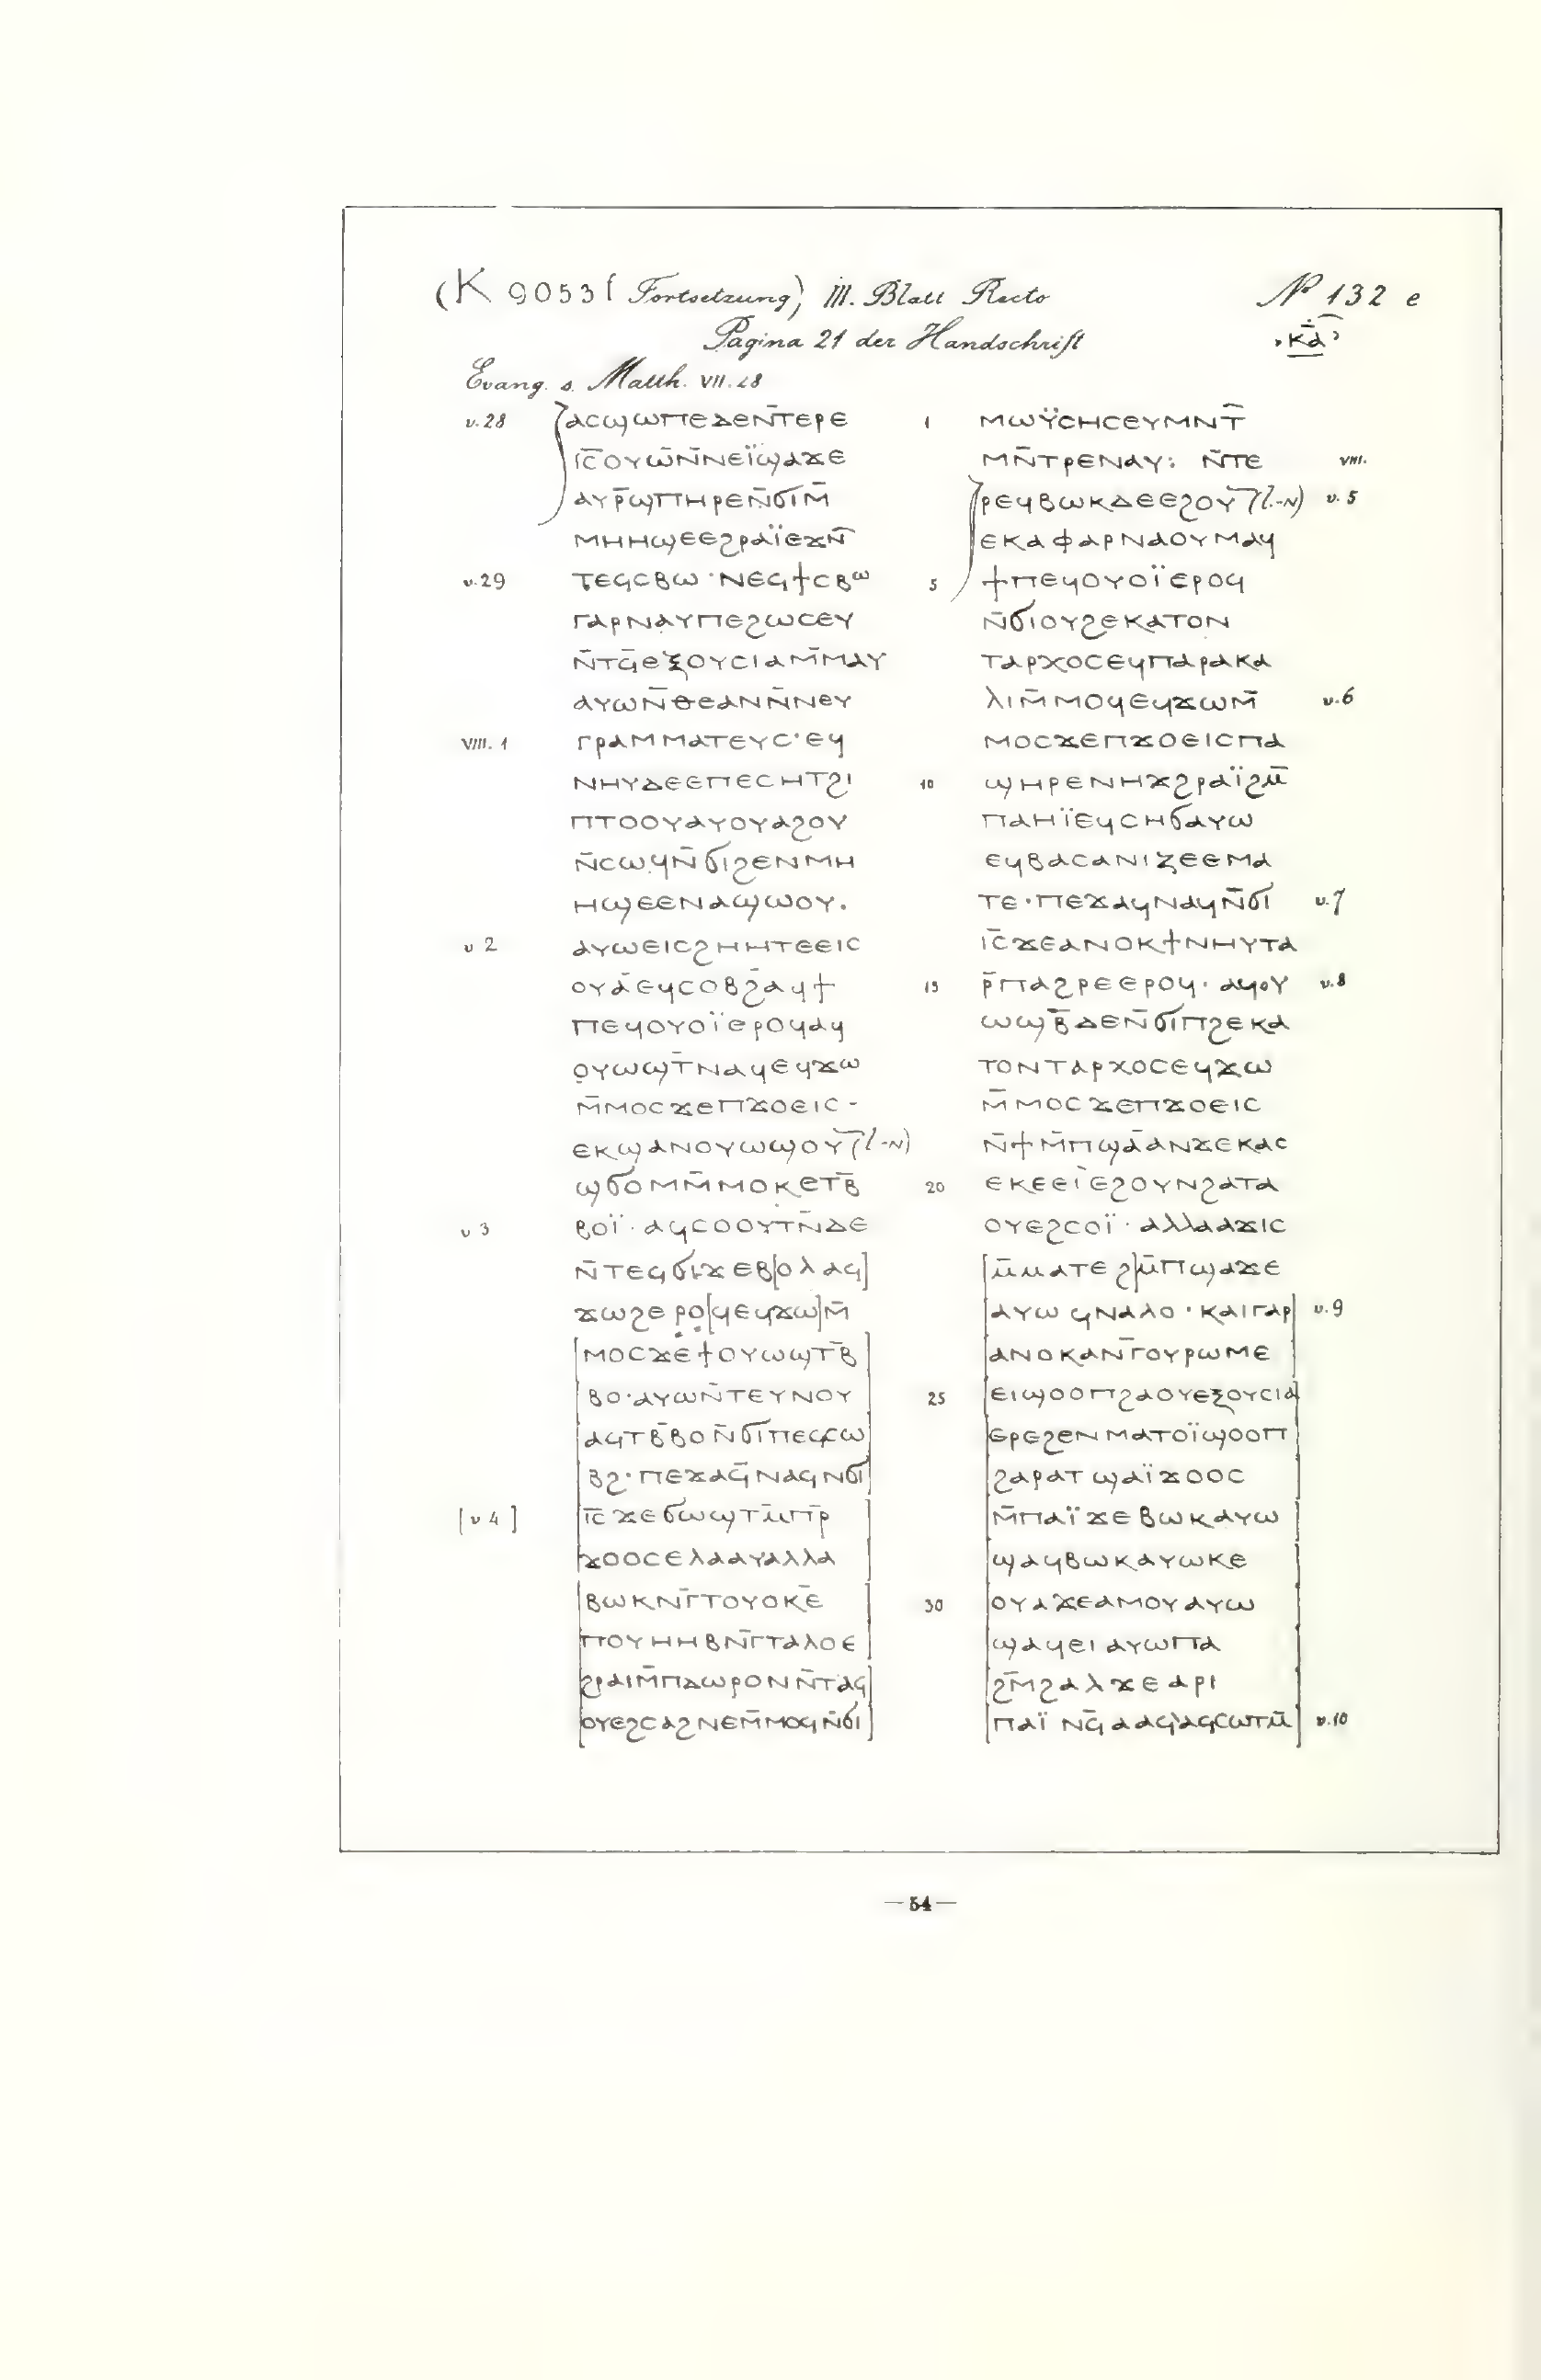 (K 9053 (Fortsetzung) III. Blatt Recto
No 132 e
Pagina 21 der Handschrift
ⲕ̅ⲁ̅
Evang. s. Matth. VII. 28
v. 28 ⲁⲥϣⲱⲡⲉⲇⲉⲛ̅ⲧⲉⲣⲉ
ⲓ̅ⲥ̅ⲟⲩⲱ̅ⲛ̅ⲛⲉⲓ̈ϣⲁϫⲉ
ⲁⲩⲣ̅ϣⲡⲏⲣⲉⲛ̅ϭⲓⲙ̅
ⲙⲏⲏϣⲉⲉϩⲣⲁⲓ̈ⲉϫⲛ̅
v. 29 ⲧⲉϥⲥⲃⲱ·ⲛⲉϥϯⲥⲃⲱ
ⲅⲁⲣⲛⲁⲩⲡⲉϩⲱⲥⲉⲩ
ⲛ̅ⲧϥ̅ⲉⲝⲟⲩⲥⲓⲁⲙ̅ⲙⲁⲩ
ⲁⲩⲱⲛ̅ⲑⲉⲁⲛⲛ̅ⲛⲉⲩ
VIII. 1 ⲅⲣⲁⲙⲙⲁⲧⲉⲩⲥ·ⲉϥ
ⲛⲏⲩⲇⲉⲉⲡⲉⲥⲏⲧϩⲓ
ⲡⲧⲟⲟⲩⲁⲩⲟⲩⲁϩⲟⲩ
ⲛ̅ⲥⲱϥⲛ̅ϭⲓϩⲉⲛⲙⲏ
ⲏϣⲉⲉⲛⲁϣⲱⲟⲩ.
v 2 ⲁⲩⲱⲉⲓⲥϩⲏⲏⲧⲉⲉⲓⲥ
ⲟⲩⲁ̇ⲉϥⲥⲟⲃϩ̅ⲁϥϯ
ⲡⲉϥⲟⲩⲟⲓ̈ⲉⲣⲟϥⲁϥ
ⲟⲩⲱϣⲧ̅ⲛⲁϥⲉϥϫⲱ
ⲙ̅ⲙⲟⲥϫⲉⲡϫⲟⲉⲓⲥ-
ⲉⲕϣⲁⲛⲟⲩⲱϣⲟⲩ̅ (l. -ⲛ)
ϣϭⲟⲙⲙ̅ⲙⲟⲕⲉⲧⲃ̅
v 3 ⲃⲟⲓ̈·ⲁϥⲥⲟⲟⲩⲧⲛ̅ⲇⲉ
ⲛ̅ⲧⲉϥϭⲓϫⲉⲃ[ⲟⲗⲁϥ]
ϫⲱϩⲉⲣⲟ[ϥⲉϥϫⲱ]ⲙ̅
[ⲙⲟⲥϫⲉϯⲟⲩⲱϣⲧⲃ̅]
[ⲃⲟ·ⲁⲩⲱⲛ̅ⲧⲉⲩⲛⲟⲩ]
[ⲁϥⲧⲃ̅ⲃⲟⲛ̅ϭⲓⲡⲉϥⲥⲱ]
[ⲃϩ·ⲡⲉϫⲁϥ̅ⲛⲁϥⲛϭⲓ]
[v 4] [ⲓ̅ⲥ̅ϫⲉϭⲱϣⲧⲙ̅ⲡⲣ̅]
[ϫⲟⲟⲥⲉⲗⲁⲁⲩⲁⲗⲗⲁ]
[ⲃⲱⲕⲛⲅ̅ⲧⲟⲩⲟⲕⲉ̅]
[ⲡⲟⲩⲏⲏⲃⲛⲅ̅ⲧⲁⲗⲟⲉ]
[ϩⲣⲁⲓⲙ̅ⲡⲇⲱⲣⲟⲛⲛ̅ⲧⲁϥ]
[ⲟⲩⲉϩⲥⲁϩⲛⲉⲙ̅ⲙⲟϥⲛ̅ϭⲓ]
1 ⲙⲱⲩ̈ⲥⲏⲥⲉⲩⲙⲛⲧ̅
ⲙⲛ̅ⲧⲣⲉⲛⲁⲩ: ⲛ̅ⲧⲉ VIII.
ⲣⲉϥⲃⲱⲕⲇⲉⲉϩⲟⲩ̅ (l. -ⲛ) v. 5
ⲉⲕⲁⲫⲁⲣⲛⲁⲟⲩⲙⲁϥ
5 ϯⲡⲉϥⲟⲩⲟⲓ̈ⲉⲣⲟϥ
ⲛ̅ϭⲓⲟⲩϩⲉⲕⲁⲧⲟⲛ
ⲧⲁⲣⲭⲟⲥⲉϥⲡⲁⲣⲁⲕⲁ
ⲗⲓⲙ̅ⲙⲟϥⲉϥϫⲱⲙ̅ v. 6
ⲙⲟⲥϫⲉⲡϫⲟⲉⲓⲥⲡⲁ
10 ϣⲏⲣⲉⲛⲏϫϩⲣⲁⲓ̈ϩⲙ̅
ⲡⲁⲏⲓ̈ⲉϥⲥⲏϭⲁⲩⲱ
ⲉϥⲃⲁⲥⲁⲛⲓⲍⲉⲉⲙⲁ
ⲧⲉ·ⲡⲉϫⲁϥⲛⲁϥⲛ̅ϭⲓ v. 7
ⲓ̅ⲥ̅ϫⲉⲁⲛⲟⲕϯⲛⲏⲩⲧⲁ
15 ⲣ̅ⲡⲁϩⲣⲉⲉⲣⲟϥ· ⲁϥⲟⲩ v. 8
ⲱϣⲃ̅ⲇⲉⲛ̅ϭⲓⲡϩⲉⲕⲁ
ⲧⲟⲛⲧⲁⲣⲭⲟⲥⲉϥϫⲱ
ⲙ̅ⲙⲟⲥϫⲉⲡϫⲟⲉⲓⲥ
ⲛ̅ϯⲙ̅ⲡϣⲁ̅ⲁⲛϫⲉⲕⲁⲥ
20 ⲉⲕⲉⲉⲓ̀ⲉϩⲟⲩⲛϩⲁⲧⲁ
ⲟⲩⲉϩⲥⲟⲓ̈·ⲁⲗⲗⲁⲁϫⲓⲥ
[ⲙ̅ⲙⲁⲧⲉϩ]ⲙ̅ⲡϣⲁϫⲉ
[ⲁⲩⲱϥⲛⲁⲗⲟ·ⲕⲁⲓⲅⲁⲣ] v. 9
[ⲁⲛⲟⲕⲁⲛⲅ̅ⲟⲩⲣⲱⲙⲉ]
25 [ⲉⲓϣⲟⲟⲡϩⲁⲟⲩⲉⲝⲟⲩⲥⲓⲁ]
[ⲉⲣⲉϩⲉⲛⲙⲁⲧⲟⲓ̈ϣⲟⲟⲡ]
[ϩⲁⲣⲁⲧϣⲁⲓ̈ϫⲟⲟⲥ]
[ⲙ̅ⲡⲁⲓ̈ϫⲉⲃⲱⲕⲁⲩⲱ]
[ϣⲁϥⲃⲱⲕⲁⲩⲱⲕⲉ]
30 [ⲟⲩⲁϫⲉⲁⲙⲟⲩⲁⲩⲱ]
[ϣⲁϥⲉⲓⲁⲩⲱⲡⲁ]
[ϩⲙ̅ϩⲁⲗϫⲉⲁⲣⲓ]
[ⲡⲁⲓ̈ ⲛϥ̅ⲁⲁϥ·ⲁϥⲥⲱⲧⲙ̅] v. 10
— 54 —